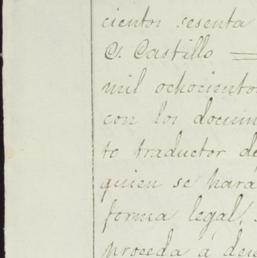 cientos sesenta
C. Castillo
mil ochociento
con los docum
to traductor de
quien se hará
forma legal,
proceda á dev